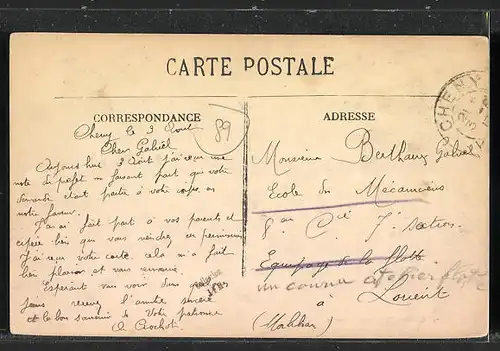 CARTE POSTALE
CORRESPONDANCE
ADRESSE
89
CHENY
Cheny le 3 Août
Cher Gabriel
Aujourd'hui 3 Août j'ai reçu une
note du préfet me faisant part que votre
demande était partie à votre corps, en
votre faveur.
J'ai fait part à vos parents et
espère bien que vous viendrez en permission
J'ai reçu votre carte cela m'a fait
bien plaisir et vous remercie.
Espérant vous voir dans
jours recevez l'amitié sincère
et le bon souvenir de votre patronne
Monsieur Berthaux Gabriel
Ecole des Mécaniciens
8me Cie 7e section
Equipage de la flotte
Lorient
à
(Morbihan)